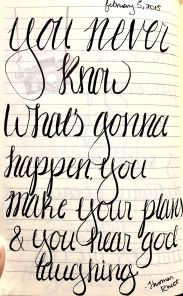 february 5, 2015
you never
know
What's gonna
happen. you
make your plans
& you hear god
laughing.
Thomas
Rhett